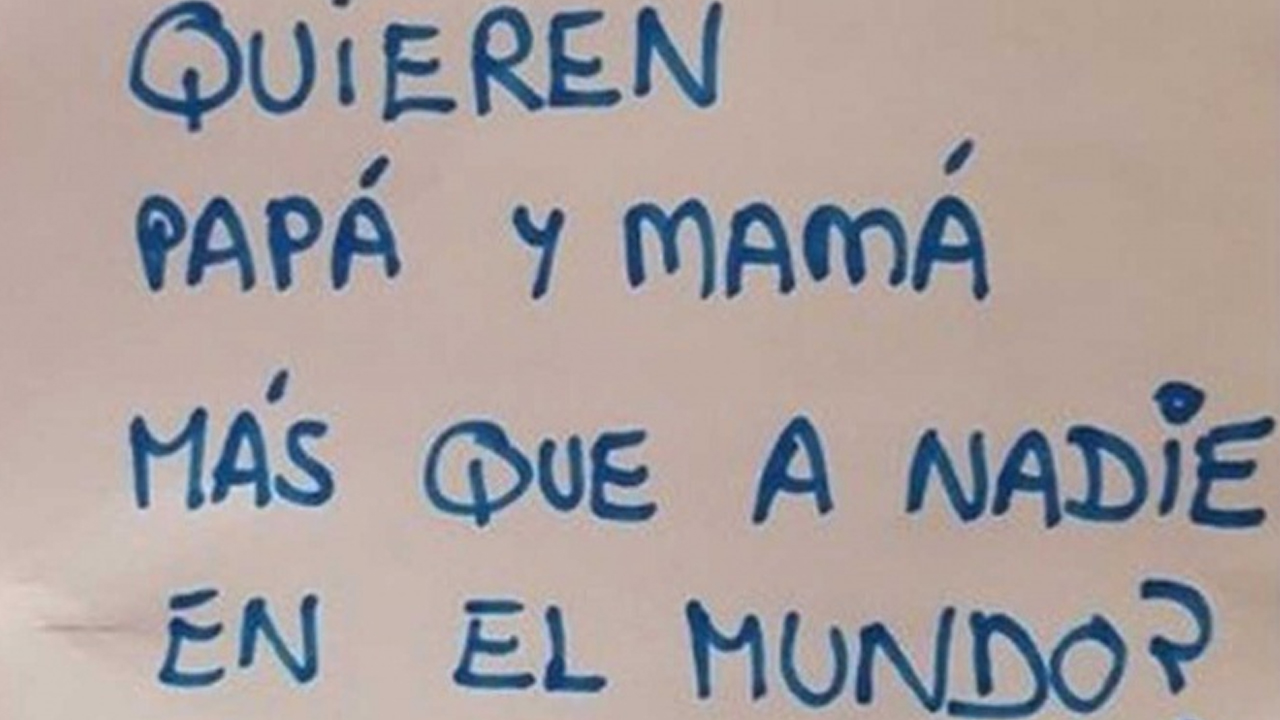 QUIEREN
PAPÁ Y MAMÁ
MÁS QUE A NADIE
EN EL MUNDO?